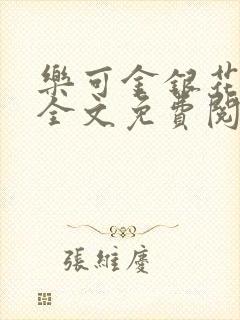 樂可金銀花
全文免費閱
張維慶